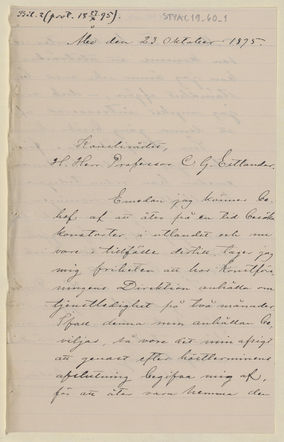 Bil. 2 (prot. 18 23/X 95).
STYAC19_60_1
Åbo den 23 Oktober 1895.
Konstnären,
H. Herr Professor C. G. Estlander.
Emedan jag känner be-
hof af att åter på en tid besöka
konstorter i utlandet och nu
vore i tillfälle dertill, tager jag
mig friheten att hos Konstföre-
ningens Direktion anhålla om
tjenstledighet på två månader.
Ifall denna min anhållan be-
viljas, så vore det min afsigt
att genast efter höstterminens
afslutning begifva mig af,
för att åter vara hemma den